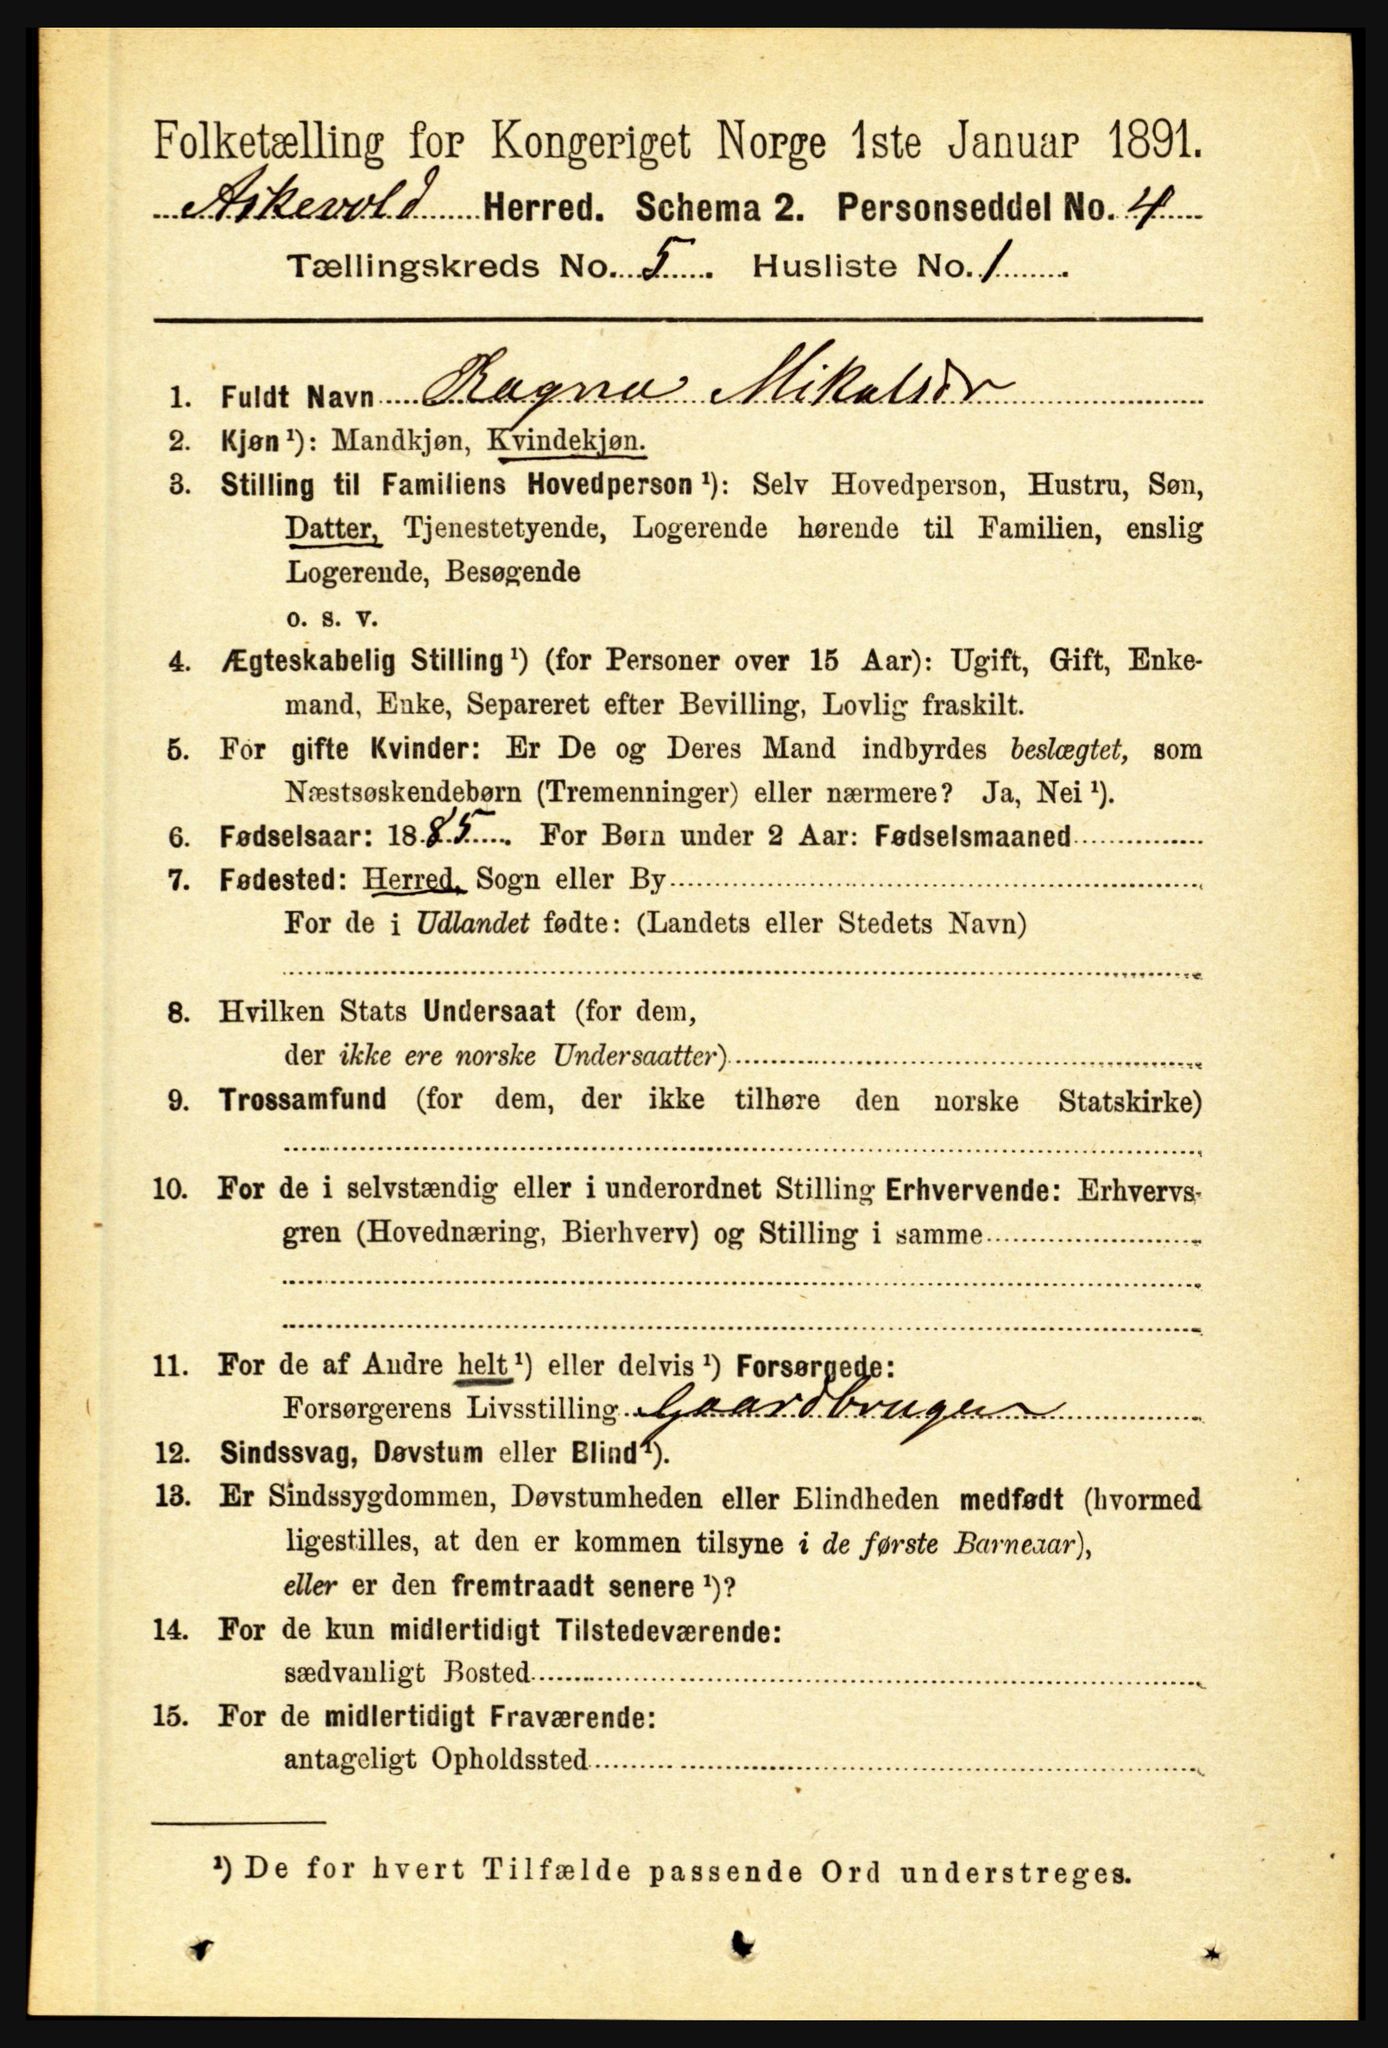 Folketælling for Kongeriget Norge 1ste Januar 1891.
Askevold Herred. Schema 2. Personseddel No. 4
Tællingskreds No. 5. Husliste No. 1.
1. Fuldt Navn Ragna Mikalsdr
2. Kjøn¹): Mandkjøn, Kvindekjøn.
3. Stilling til Familiens Hovedperson¹): Selv Hovedperson, Hustru, Søn,
Datter, Tjenestetyende, Logerende hørende til Familien, enslig
Logerende, Besøgende
o. s. v.
4. Ægteskabelig Stilling¹) (for Personer over 15 Aar): Ugift, Gift, Enke-
mand, Enke, Separeret efter Bevilling, Lovlig fraskilt.
5. For gifte Kvinder: Er De og Deres Mand indbyrdes beslægtet, som
Næstsøskendebørn (Tremenninger) eller nærmere? Ja, Nei¹).
6. Fødselsaar: 1885. For Børn under 2 Aar: Fødselsmaaned
7. Fødested: Herred, Sogn eller By
For de i Udlandet fødte: (Landets eller Stedets Navn)
8. Hvilken Stats Undersaat (for dem,
der ikke ere norske Undersaatter)
9. Trossamfund (for dem, der ikke tilhøre den norske Statskirke)
10. For de i selvstændig eller i underordnet Stilling Erhvervende: Erhvervs-
gren (Hovednæring, Bierhverv) og Stilling i samme
11. For de af Andre helt¹) eller delvis¹) Forsørgede:
Forsørgerens Livsstilling Gaardbruger
12. Sindssvag, Døvstum eller Blind¹).
13. Er Sindssygdommen, Døvstumheden eller Blindheden medfødt (hvormed
ligestilles, at den er kommen tilsyne i de første Barneaar),
eller er den fremtraadt senere¹)?
14. For de kun midlertidigt Tilstedeværende:
sædvanligt Bosted
15. For de midlertidigt Fraværende:
antageligt Opholdssted
¹) De for hvert Tilfælde passende Ord understreges.